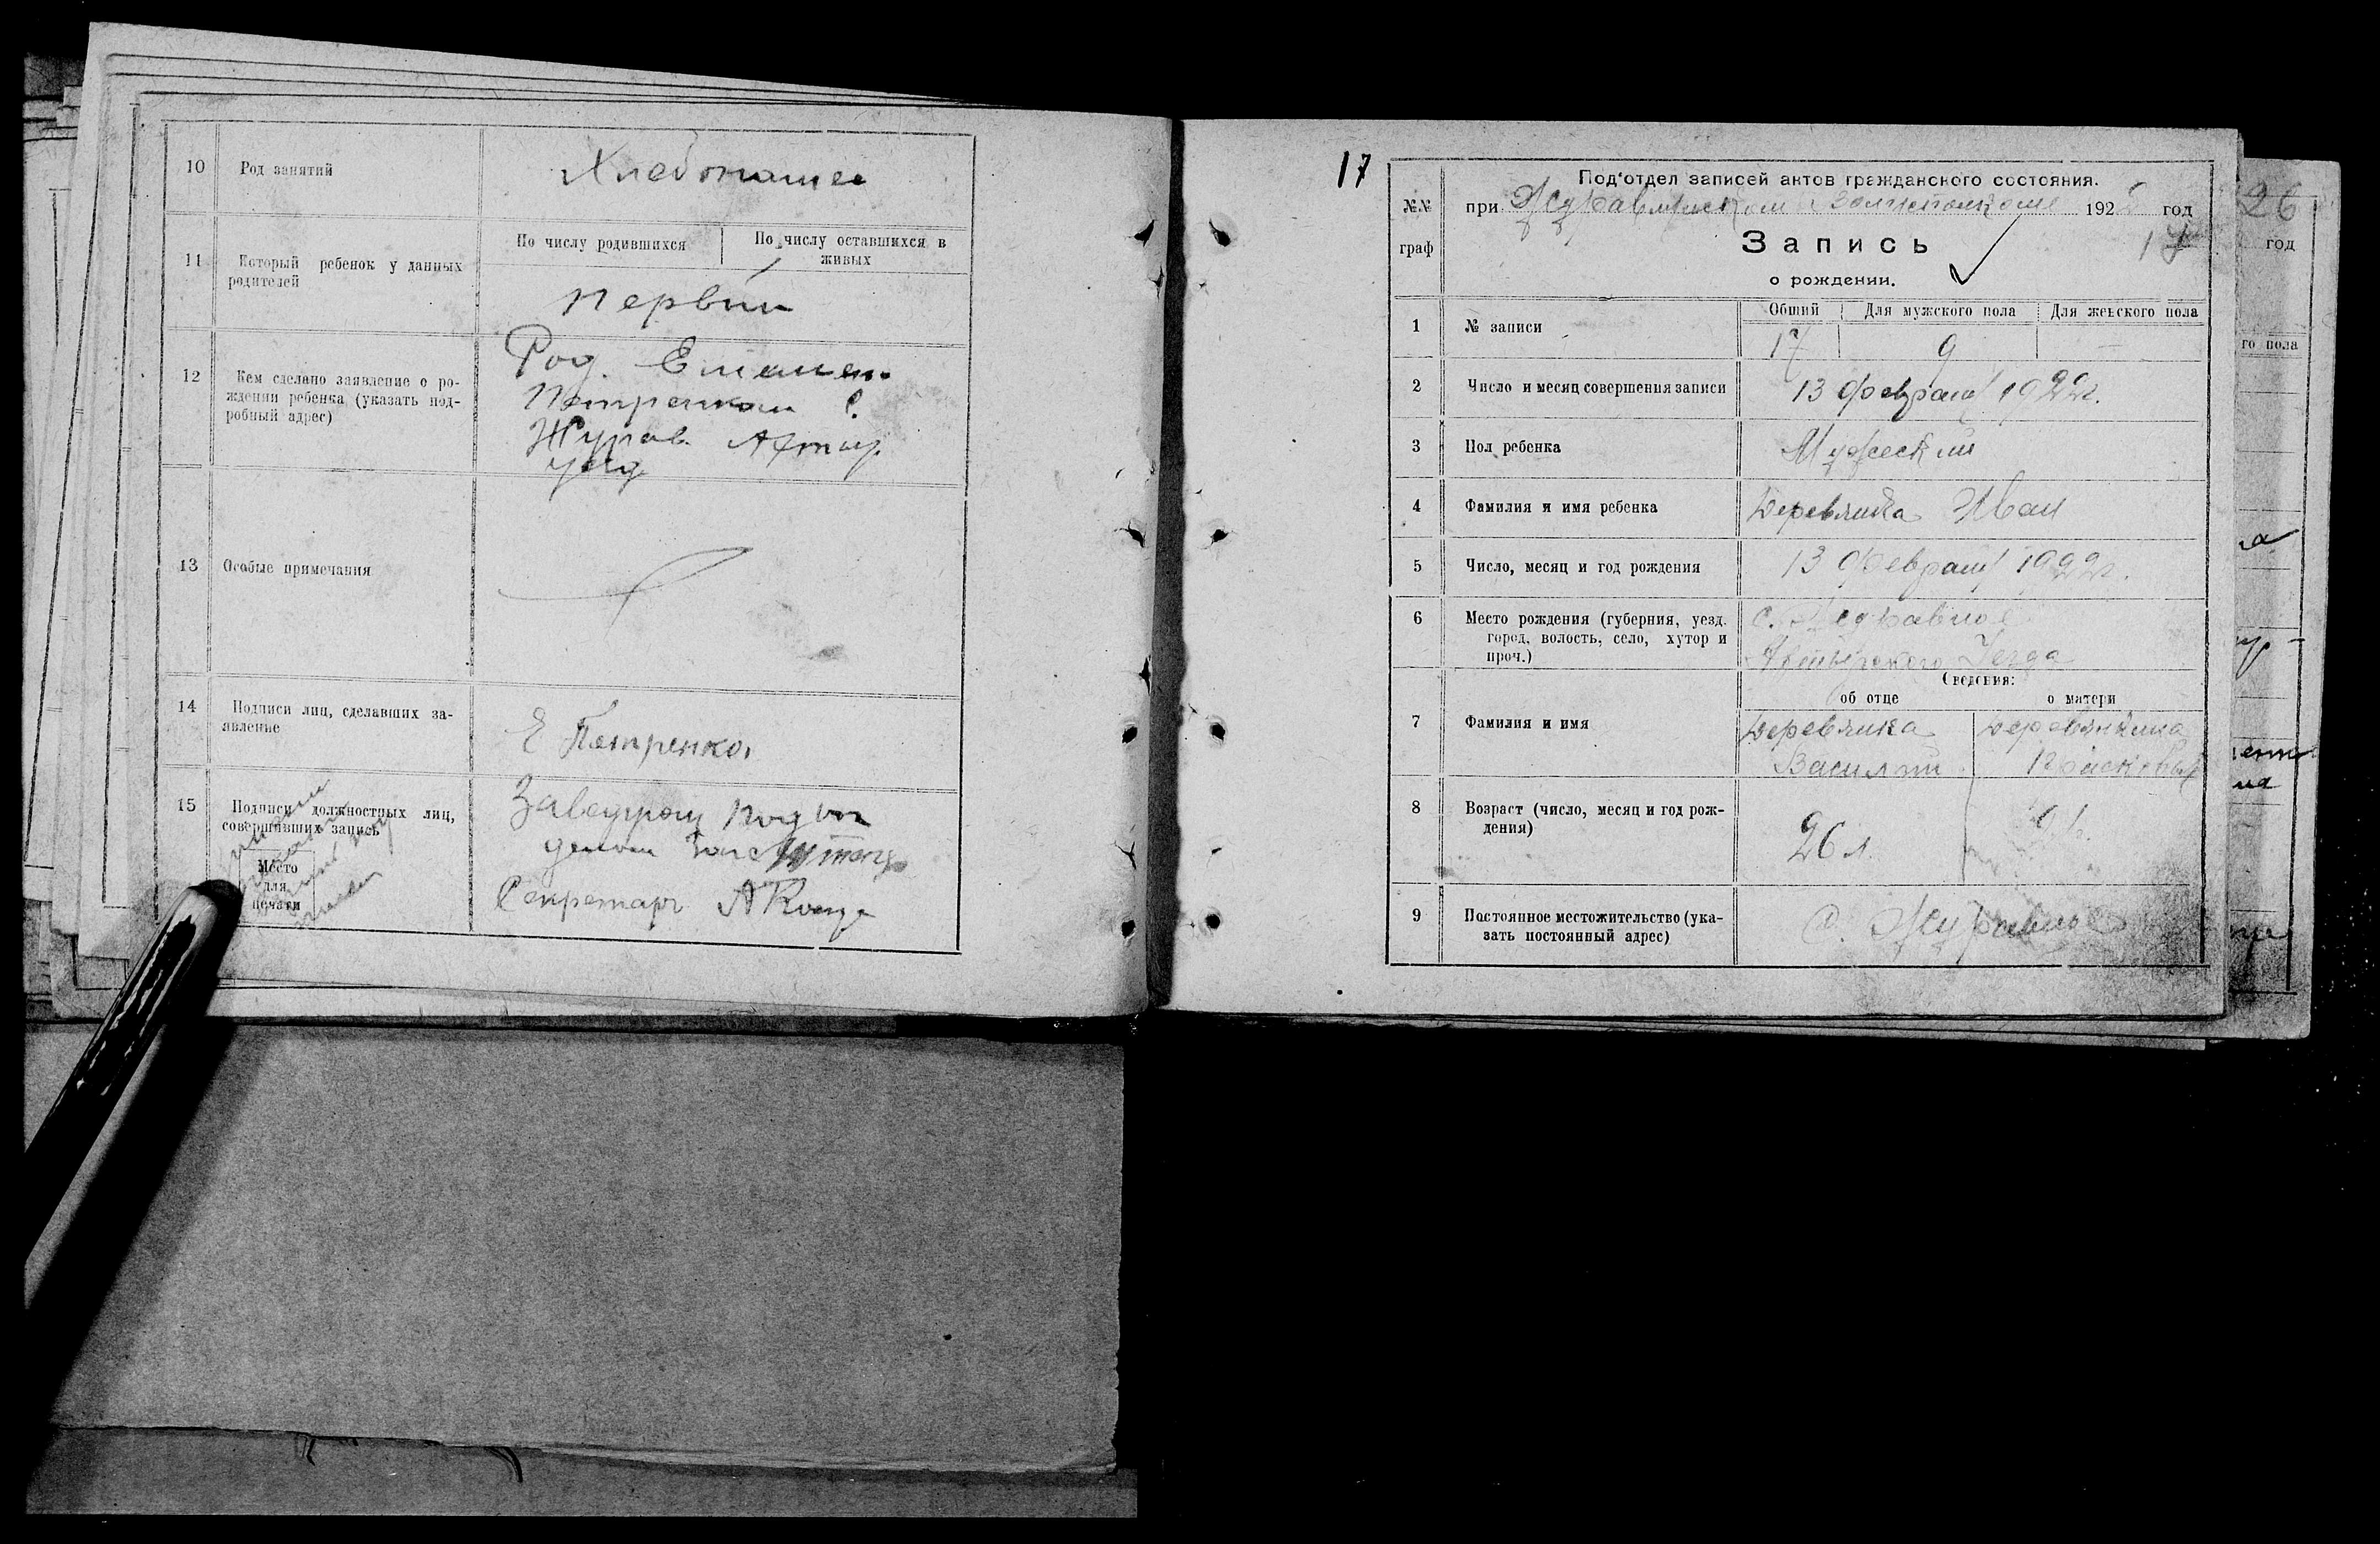 10 Род занятий Хлебопашец
11 Который ребенок у данных родителей
По числу родившихся По числу оставшихся в живых
первый
12 Кем сделано заявление о ро-
ждении ребенка (указать под-
робный адрес)
Род. Емельян
Петренком С.
Журав. Ахтыр.
уезд
13 Особые примечания
14 Подписи лиц, сделавших за-
явление
Е Петренко
15 Подписи должностных лиц,
совершивших запись
Место
для
печати
Заведующ подот
делом Загс
Секретарь
17
Под'отдел записей актов гражданского состояния.
№№
граф
при Журавлянском Волисполкоме 192 год
17
Запись
о рождении.
1 № записи
Общий Для мужского пола Для женского пола
17 9 —
2 Число и месяц совершения записи 13 февраля 1922г.
3 Пол ребенка Мужеский
4 Фамилия и имя ребенка Деревянка Иван
5 Число, месяц и год рождения 13 февраля 1922г.
6 Место рождения (губерния, уезд.
город, волость, село, хутор и
проч.)
с. Журавное
Ахтырского Уезда
Сведения:
об отце о матери
7 Фамилия и имя
Деревянка Деревянкина
Василий
8 Возраст (число, месяц и год рож-
дения)
26 л.
9 Постоянное местожительство (ука-
зать постоянный адрес)
С. Журавное
26
год
го пола